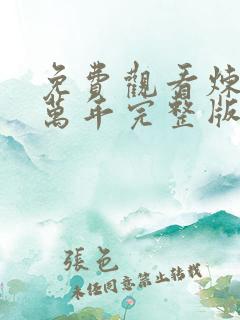 免費觀看煉
萬年完整版
張色
未經同意禁止轉載